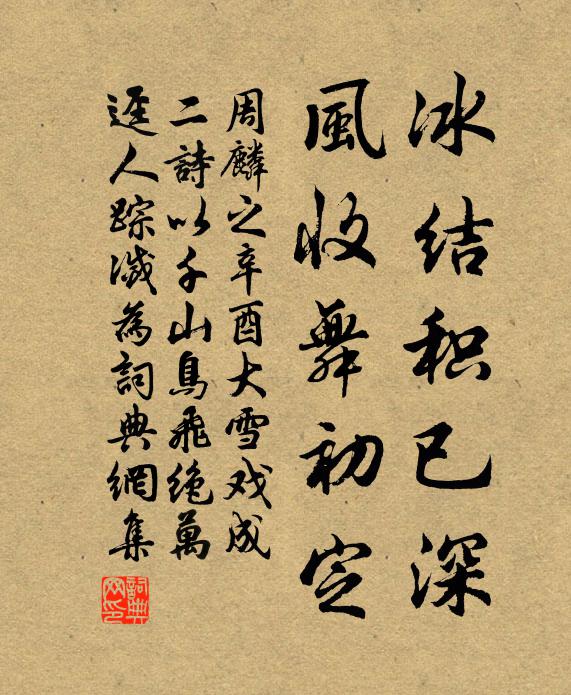 冰结积已深
風收舞初定
周麟之辛酉大雪戏成
二詩以千山鳥飛绝萬
迳人踪滅為詞典網集
詞典网印